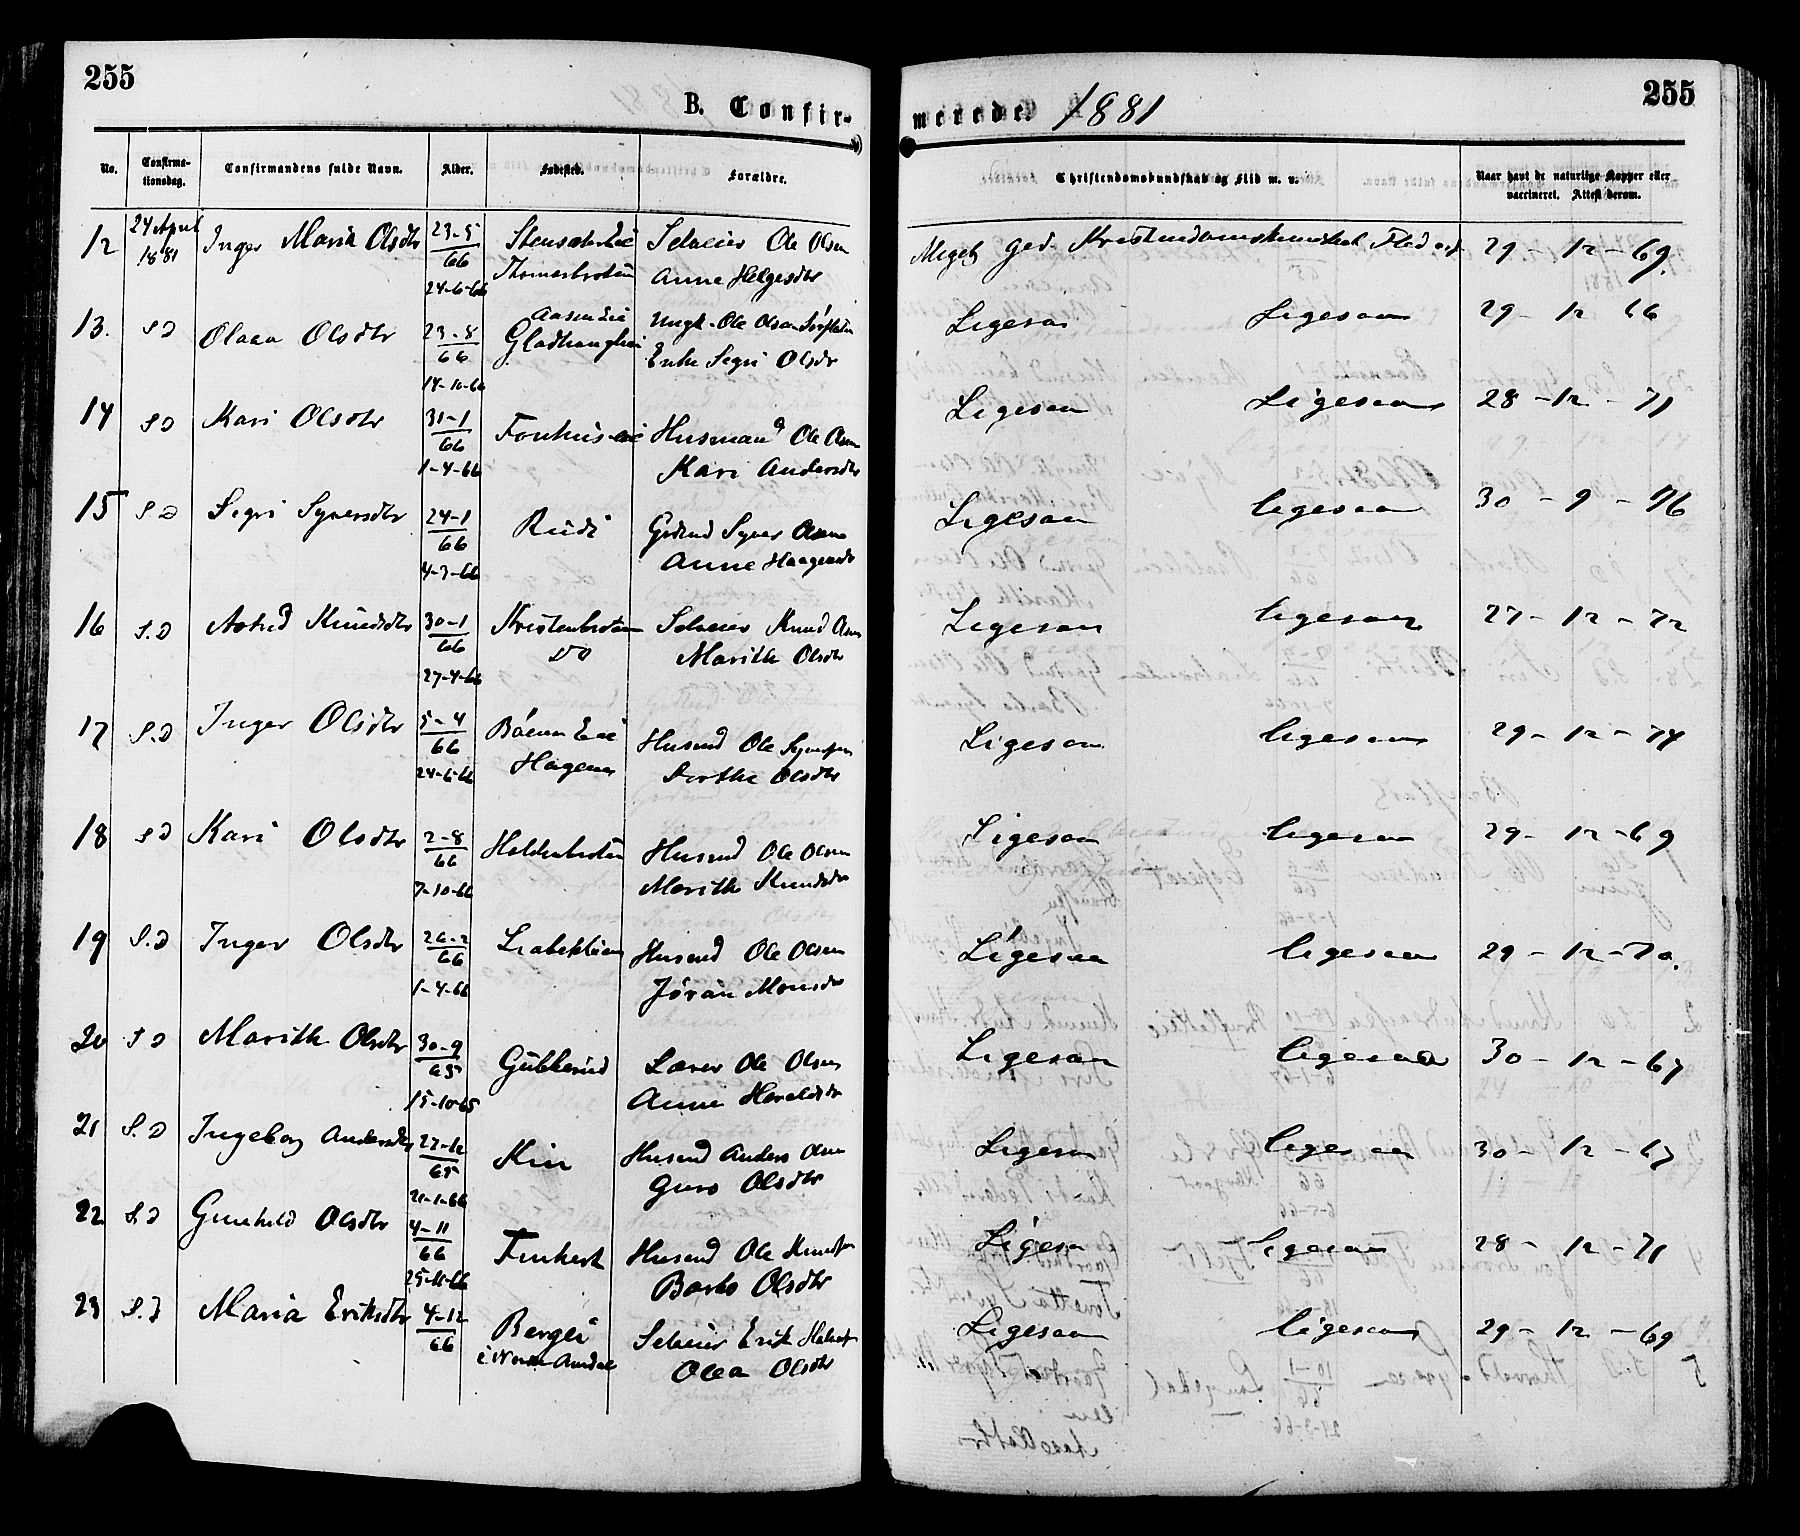 255
255
B. Confir-
merede. 1881
No.
Confirma-
tionsdag.
Confirmandens fulde Navn.
Alder.
Fødested.
Forældre.
Christendomskundskab og Flid m. v.
Naar havt de naturlige Kopper eller
vaccineret. Attest derom.
12 24 April 1881 Inger Maria Olsdtr 23-5 66 24-6-66 Selveier Ole Olsen
Anne Helgesdtr
Meget god Kristendomskundskab Flid 29-12-69.
13. S D Olaea Olsdtr 23-8 66 14-10-66 Ungk. Ole Olsen
Enke Segri Olsdtr
Ligesaa Ligesaa 29-12 66
14 S D Kari Olsdtr 31-1 66 1-4-66 Fonhus eie Husmand Ole Olsen
Kari Andersdtr
Ligesaa Ligesaa 28-12-71
15 S D Segri Syversdtr 24-1 66 4-3-66 Rudi Grdmd Syver Olsen
Anne Haagensdtr
Ligesaa ligesaa 30-9-76
16 S.D Astrid Knudsdtr 30-1 66 27-4-66 Kristenbraaten Selveier Knud Olsen
Marith Olsdtr
Ligesaa ligesaa 27-12-72
17 S.D Inger Olsdtr 5-4 66 24-6-66 Bøen Eie
Hagen
Husmd Ole
Dorthe Olsdtr
Ligesaa ligesaa 29-12-74
18 S D Kari Olsdtr 2-8 66 7-10-66 Husmd Ole Olsen
Marith Knudsdtr
Ligesaa ligesaa 29-12-69
19 S.D Inger Olsdtr 26-2 66 1-4-66 Husmd Ole Olsen
Jøran Monsdtr
Ligesaa ligesaa 29-12-70.
20 S D Marith Olsdtr 30-9 65 15-10-65 Gubberud Lærer Ole Olsen
Anne Haraldsdtr
Ligesaa ligesaa 30-12-67
21 S.D Ingeborg Andersdtr 22-12 65 21-1-66 Husmd Anders Olsen
Guro Olsdtr
Ligesaa ligesaa 30-12-67
22 S.D Gunhild Olsdtr 4-11 66 25-11-66 Husmd Ole Knudsen
Barbo Olsdtr
Ligesaa ligesaa 28-12-71
23 S.D Maria Eriksdtr 4-12 66 Bergei
i Nordre Aurdal
Selveier Erik
Olea Olsdtr
Ligesaa ligesaa 29-12-69